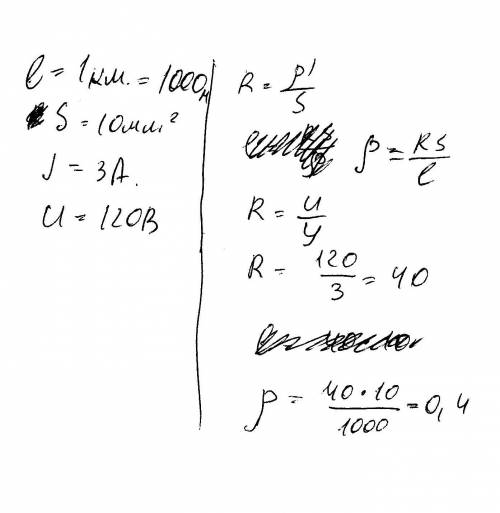 l = 1 км. = 1000м
S = 10 мм²
J = 3А.
U = 120В
R = ρl/S
ρ = RS/l
R = U/У
R = 120/3 = 40
ρ = 40·10/1000 = 0,4